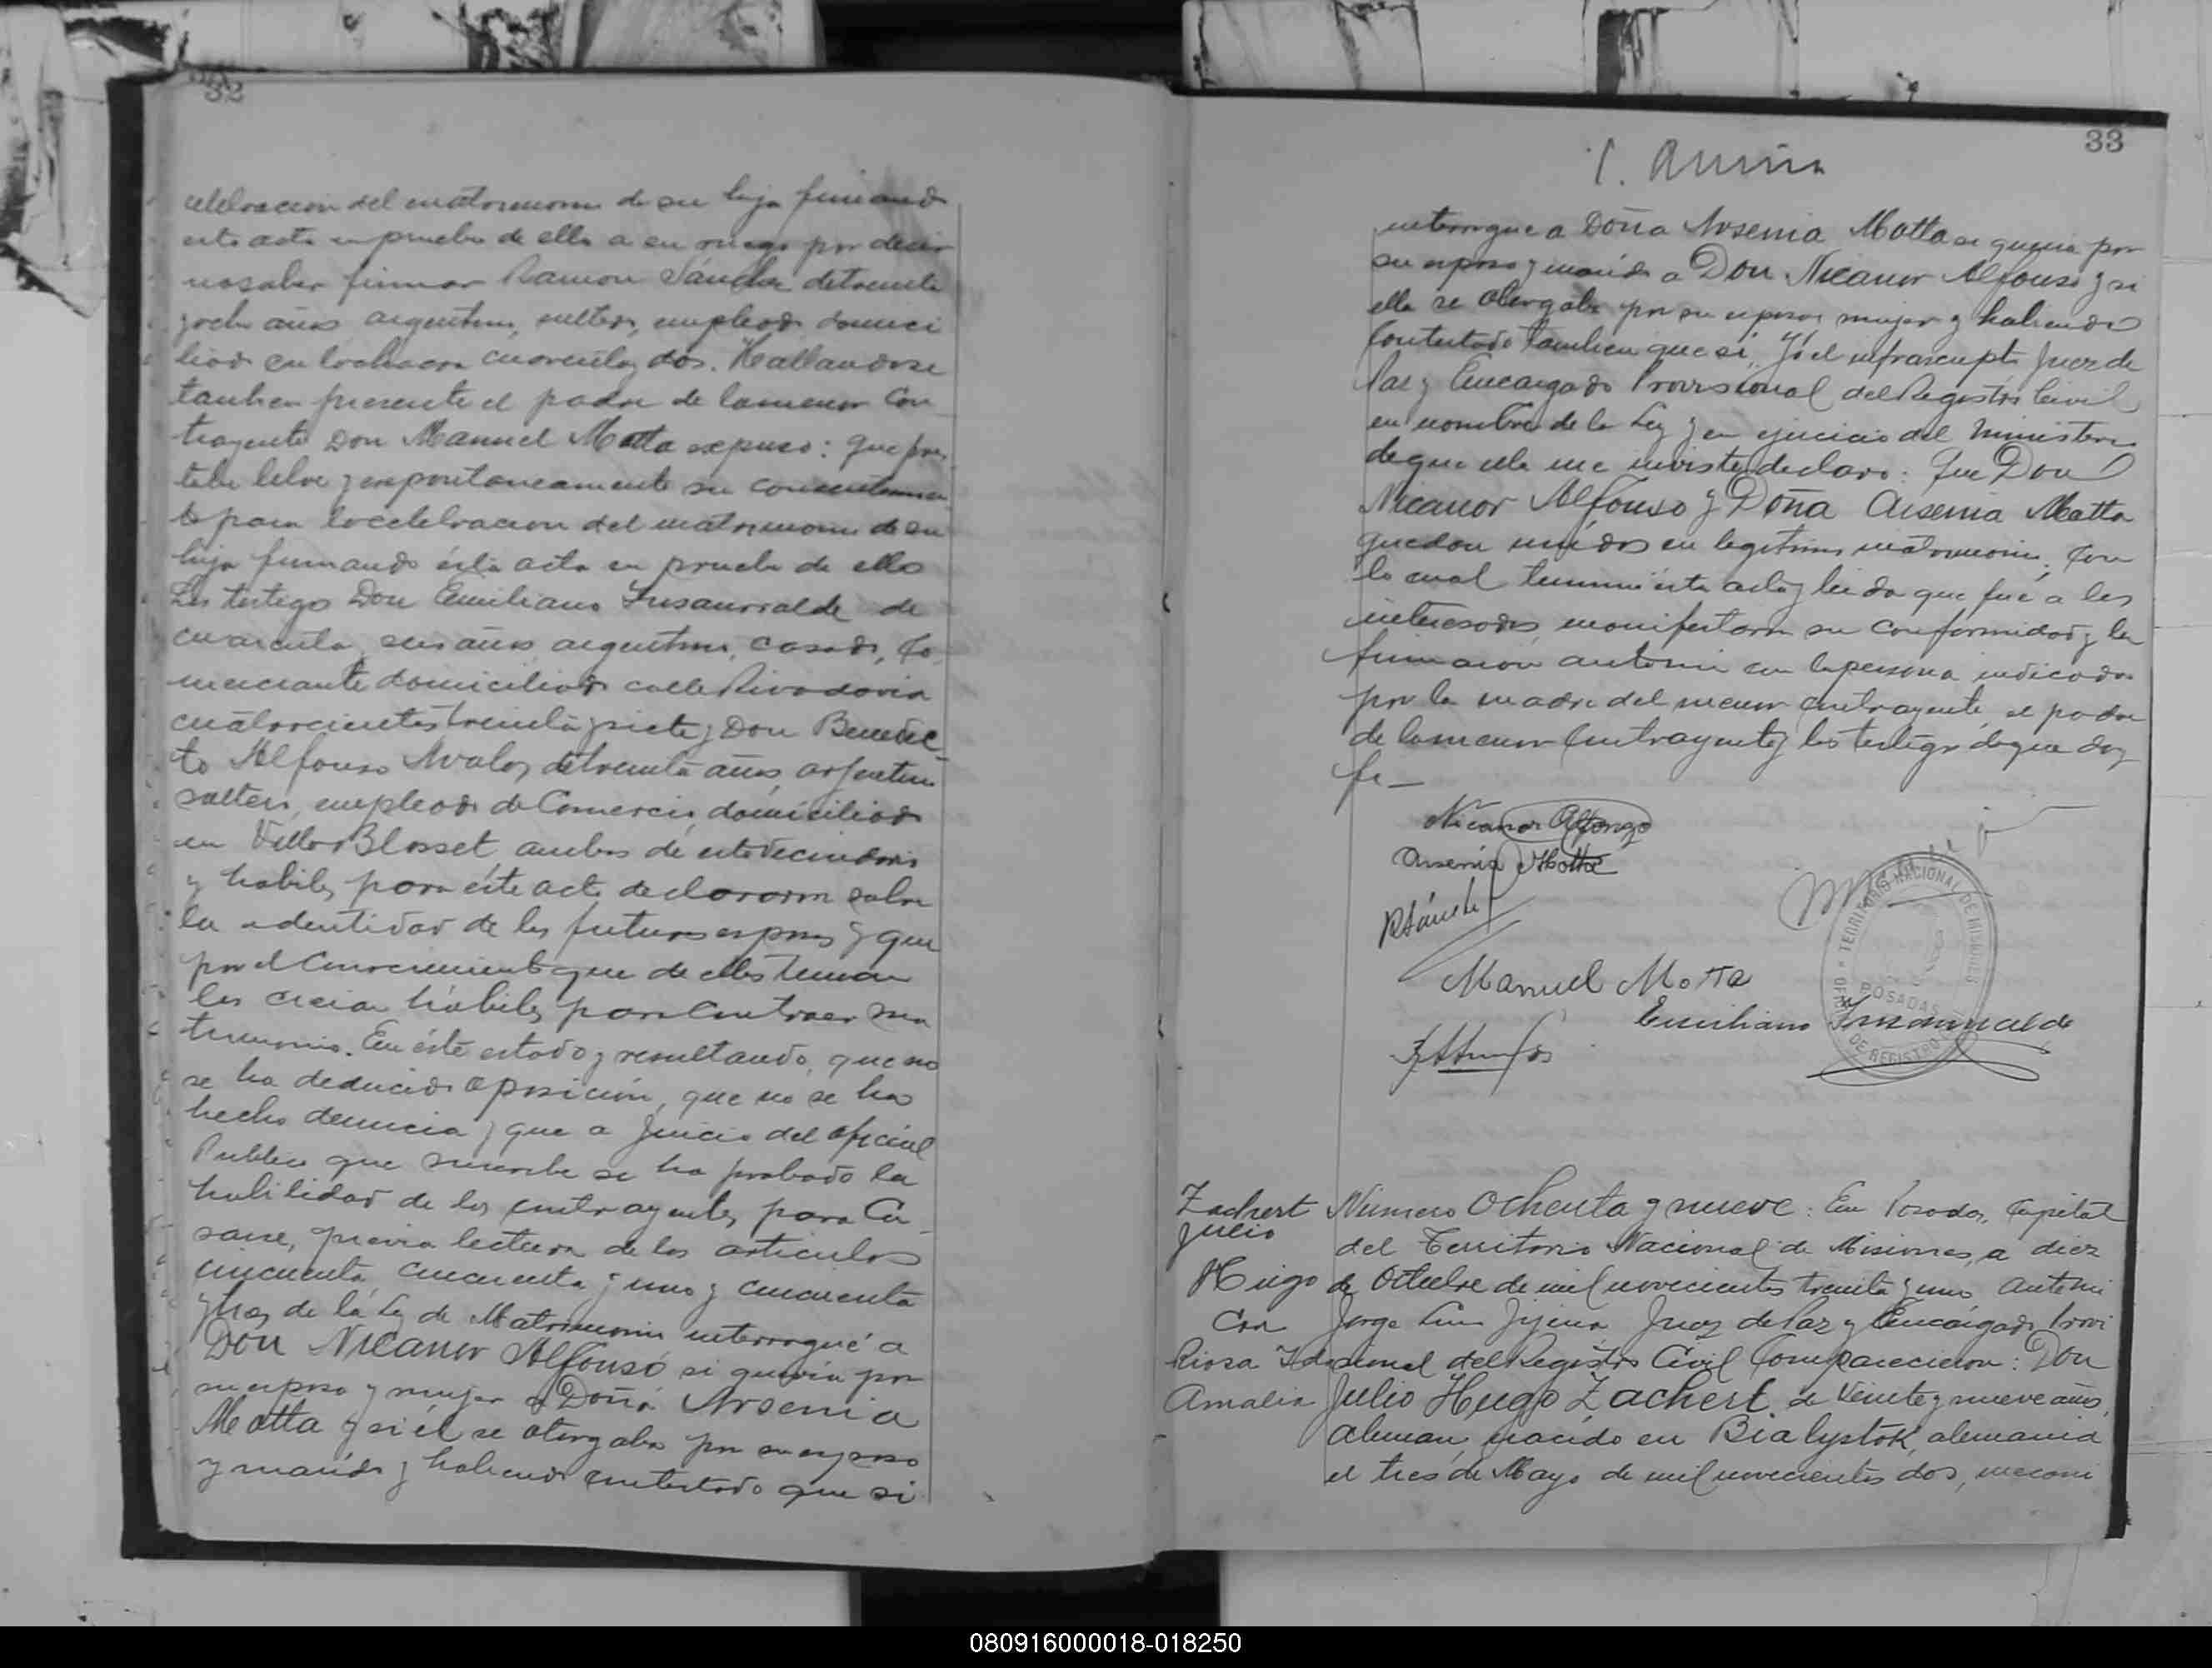 32
celebracion del matrimonio de su hijo firmando
esta acta en prueba de ello a su ruego por decir
no saber firmar Ramon Sánchez de treinta
y ocho años argentino, soltero, empleado domici
liado en la chacra cuarenta y dos. Hallandose
tambien presente el padre de la menor Con
trayente Don Manuel Motta expuso: Que pres
taba libre y espontaneamente su consentimien
to para la celebracion del matrimonio de su
hija firmando ésta acta en prueba de ello
Los testigos Don Emiliano Insaurralde de
cuarenta y seis años argentino, casado, Co
merciante domiciliado calle Rivadavia
cuatrocientos treinta y siete y Don Benedic
to Alfonso Avalos de treinta años, argentino
soltero, empleado de Comercio, domiciliado
en Villa Blosset, ambos de este vecindario
y habiles para éste acto declararon sobre
la identidad de los futuros esposos y que
por el Conocimiento que de ellos tenian
los creian hábiles para Contraer ma
trimonio. En éste estado y resultando, que no
se ha deducido oposición, que no se ha
hecho denuncia y que a juicio del oficial
Publico que suscribe se ha probado la
habilidad de los contrayentes para Ca
sarse, previa lectura de los articulos
cincuenta, cincuenta y uno y cincuenta
y tres de la Ley de Matrimonio interrogué a
Don Nicanor Alfonso si queria por
su esposa y mujer a Doña Arsenia
Motta y si él se otorgaba por su esposo
y marido y habiendo contestado que si
33
interrogue a Doña Arsenia Motta si queria por
su esposo y marido a Don Nicanor Alfonso y si
ella se otorgaba por su esposa y mujer y habiendo
Contestado tambien que si, Yo el infrascripto Juez de
Paz y Encargado Provisional del Registro Civil
en nombre de la Ley y en ejercicio del Ministerio
de que ella me inviste declaro: Que Don
Nicanor Alfonso y Doña Arsenia Motta
quedan unidos en legitimo matrimonio. Con
lo cual terminó esta acta y leida que fué a los
interesados, manifestaron su conformidad y la
firmaron ante mi con la persona indicada
por la madre del menor contrayente, el padre
de la menor contrayente y los testigos de que doy
fe_
Nicanor Alfonzo
Arsenia Motta
RSánchez
Manuel Motta
Emiliano Insaurralde
TERRITORIO NACIONAL DE MISIONES
POSADAS
DE REGISTRO
Zachert
Julio
Hugo
Con
Amalia
Número Ochenta y nueve: En Posadas, Capital
del Territorio Nacional de Misiones, a diez
de Octubre de mil novecientos treinta y uno, ante mi
Jorge Luis Jijena Juez de Paz y Encargado Provi
sional del Registro Civil Comparecieron: Don
Julio Hugo Zachert, de Veinte y nueve años,
aleman, nacido en Bialystok, alemania
el tres de Mayo de mil novecientos dos, mecani
080916000018-018250